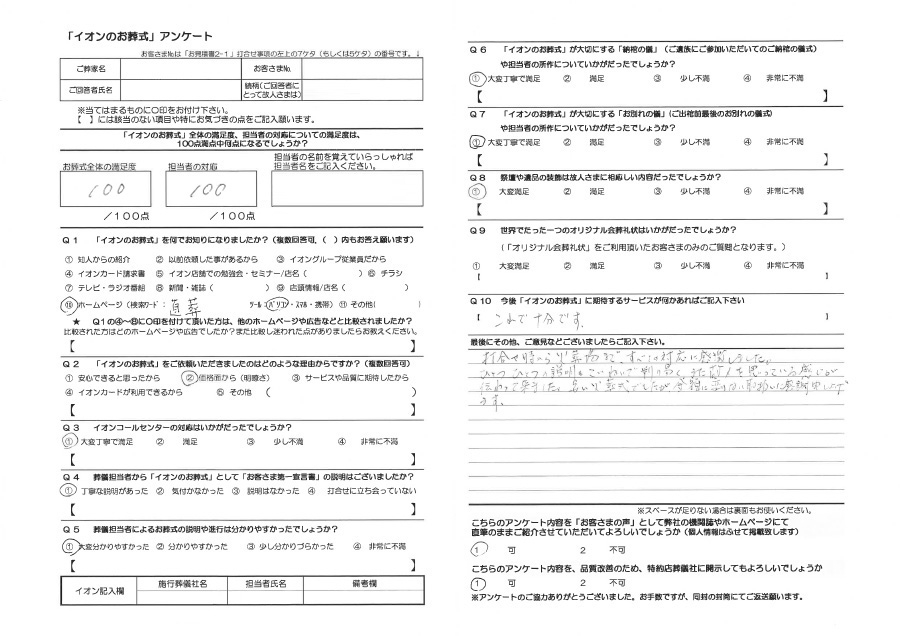 「イオンのお葬式」アンケート
お客さまNoは「お見積書2-1」打合せ事項の左上の7ケタ(もしくは5ケタ)の番号です。↓
ご葬家名 お客さまNo.
ご回答者氏名 続柄(ご回答者にとって故人さまは)
※当てはまるものに○印をお付け下さい。
【 】には該当のない項目や特にお気づきの点をご記入願います。
「イオンのお葬式」全体の満足度、担当者の対応についての満足度は、
100点満点中何点になるでしょうか?
お葬式全体の満足度 担当者の対応 担当者の名前を覚えていらっしゃれば
担当者名をご記入ください。
100 100
/100点 /100点
Q1 「イオンのお葬式」を何でお知りになりましたか?(複数回答可、( )内もお答え願います)
① 知人からの紹介 ② 以前依頼した事があるから ③ イオングループ従業員だから
④ イオンカード請求書 ⑤ イオン店舗での勉強会・セミナー/店名( ) ⑥ チラシ
⑦ テレビ・ラジオ番組 ⑧ 新聞・雑誌( ) ⑨ 店頭情報/店名( )
⑩ ホームページ(検索ワード: 直葬 ツール:パソコン・スマホ・携帯) ⑪ その他( )
★ Q1の④~⑩に○印を付けて頂いた方は、他のホームページや広告などと比較されましたか?
比較された方はどのホームページや広告でしたか?また比較し迷われた点がありましたらお教えください。
【 】
Q2 「イオンのお葬式」をご依頼いただきましたのはどのような理由からですか?(複数回答可)
① 安心できると思ったから ② 価格面から(明瞭さ) ③ サービスや品質に期待したから
④ イオンカードが利用できるから ⑤ その他( )
Q3 イオンコールセンターの対応はいかがだったでしょうか?
① 大変丁寧で満足 ② 満足 ③ 少し不満 ④ 非常に不満
【 】
Q4 葬儀担当者から「イオンのお葬式」として「お客さま第一宣言書」の説明はございましたか?
① 丁寧な説明があった ② 気付かなかった ③ 説明はなかった ④ 打合せに立ち会っていない
【 】
Q5 葬儀担当者によるお葬式の説明や進行は分かりやすかったでしょうか?
① 大変分かりやすかった ② 分かりやすかった ③ 少し分かりづらかった ④ 非常に不満
【 】
イオン記入欄 施行葬儀社名 担当者氏名 備考欄
Q6 「イオンのお葬式」が大切にする「納棺の儀」(ご遺族にご参加いただいてのご納棺の儀式)
や担当者の所作についていかがだったでしょうか?
① 大変丁寧で満足 ② 満足 ③ 少し不満 ④ 非常に不満
【 】
Q7 「イオンのお葬式」が大切にする「お別れの儀」(ご出棺前最後のお別れの儀式)
や担当者の所作についていかがだったでしょうか?
① 大変丁寧で満足 ② 満足 ③ 少し不満 ④ 非常に不満
【 】
Q8 祭壇や遺品の装飾は故人さまに相応しい内容だったでしょうか?
① 大変満足 ② 満足 ③ 少し不満 ④ 非常に不満
【 】
Q9 世界でたった一つのオリジナル会葬礼状はいかがだったでしょうか?
(「オリジナル会葬礼状」をご利用頂いたお客さまのみのご質問となります。)
① 大変満足 ② 満足 ③ 少し不満 ④ 非常に不満
【 】
Q10 今後「イオンのお葬式」に期待するサービスが何かあればご記入下さい
【 これで十分です。 】
最後にその他、ご意見などございましたらご記入下さい。
打合せ時から火葬場まで、すべての対応に感謝しました。
ひとつひとつの説明もていねいで判り易く、また故人を思っている感じが
伝わって来ました。
ます。
※スペースが足りない場合は裏面もお使いください。
こちらのアンケート内容を「お客さまの声」として弊社の機関誌やホームページにて
直筆のままご紹介させていただいてよろしいでしょうか(個人情報はふせて掲載致します)
1 可 2 不可
こちらのアンケート内容を、品質改善のため、特約店葬儀社に開示してもよろしいでしょうか
1 可 2 不可
※アンケートのご協力ありがとうございました。お手数ですが、同封の封筒にてご返送願います。